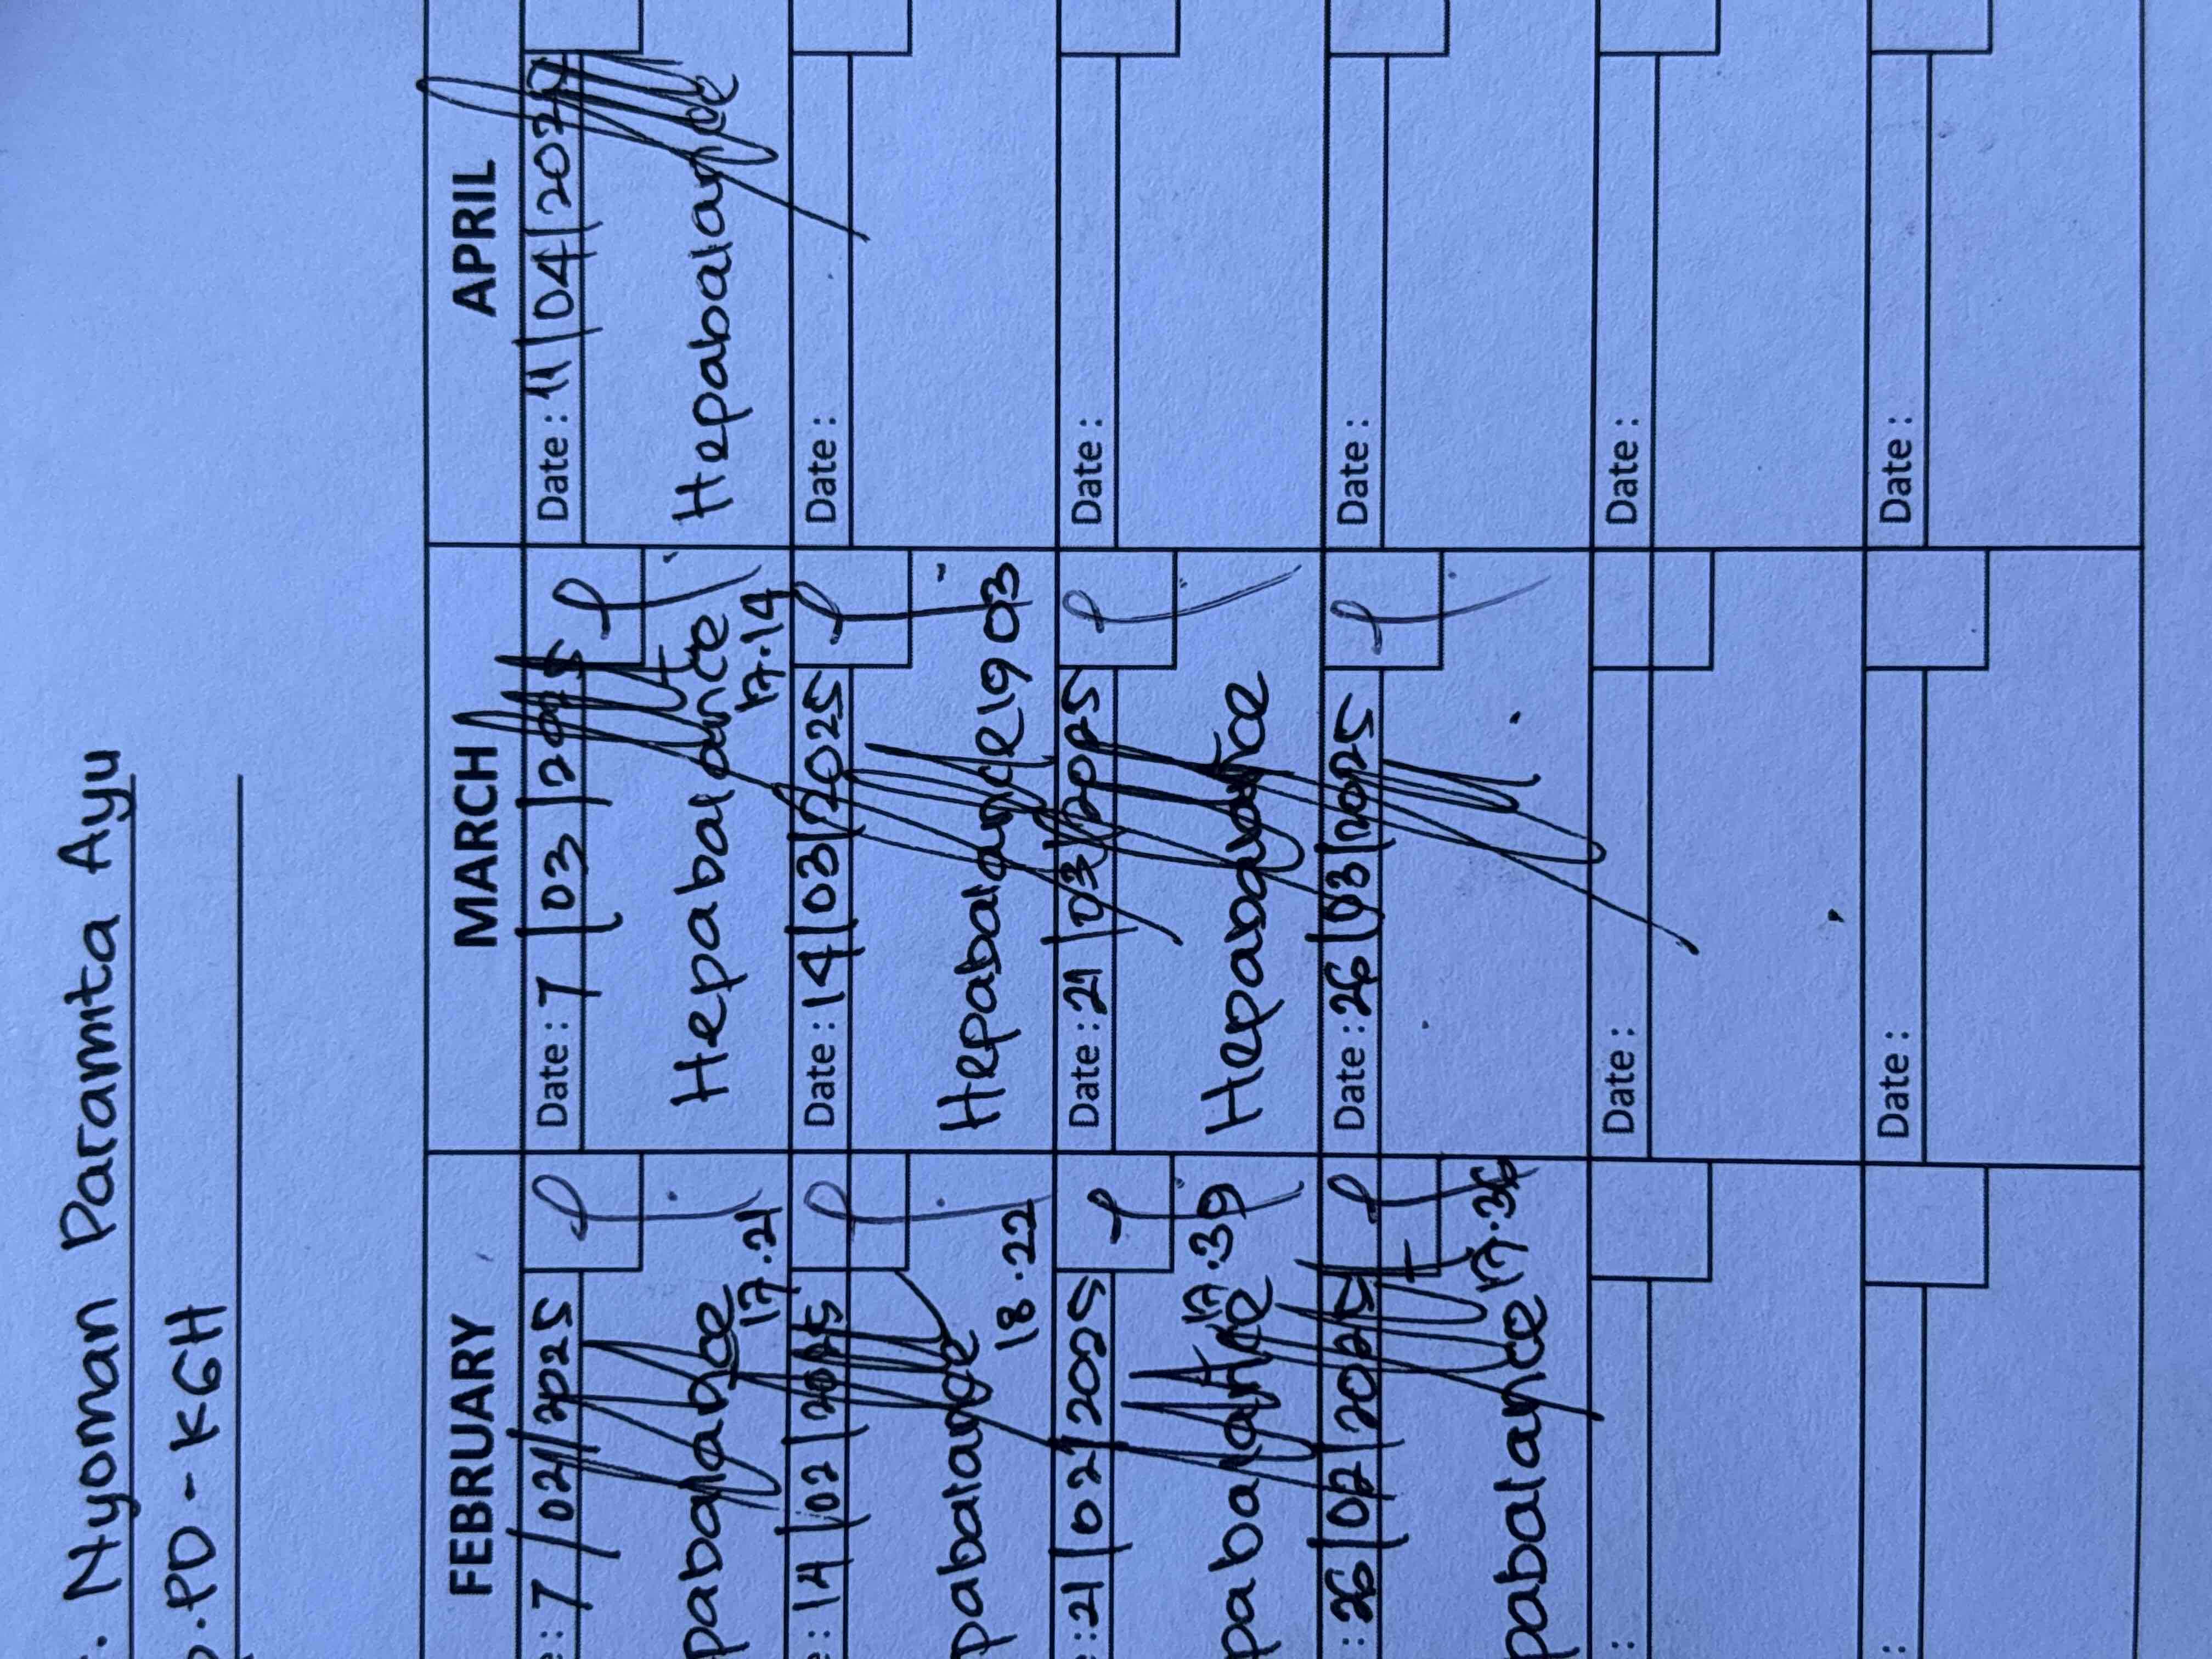 . Nyoman Paramita Ayu
.PD - KGH
FEBRUARY MARCH APRIL
e : 7 / 02 / 2025 Date : 7 / 03 / 2025 Date : 11 / 04 / 202
pabalance Hepabalance Hepabalance
17.21 17.14
e : 14 / 02 / 2025 Date : 14 / 03 / 2025 Date :
pabalance Hepabalance 19 03
18.22
: 21 / 02 / 2025 Date : 21 / 03 / 2025 Date :
17.39
pabalance Hepabalance
: 26 / 02 / 2025 Date : 26 / 03 / 2025 Date :
pabalance 17.36
: Date : Date :
: Date : Date :